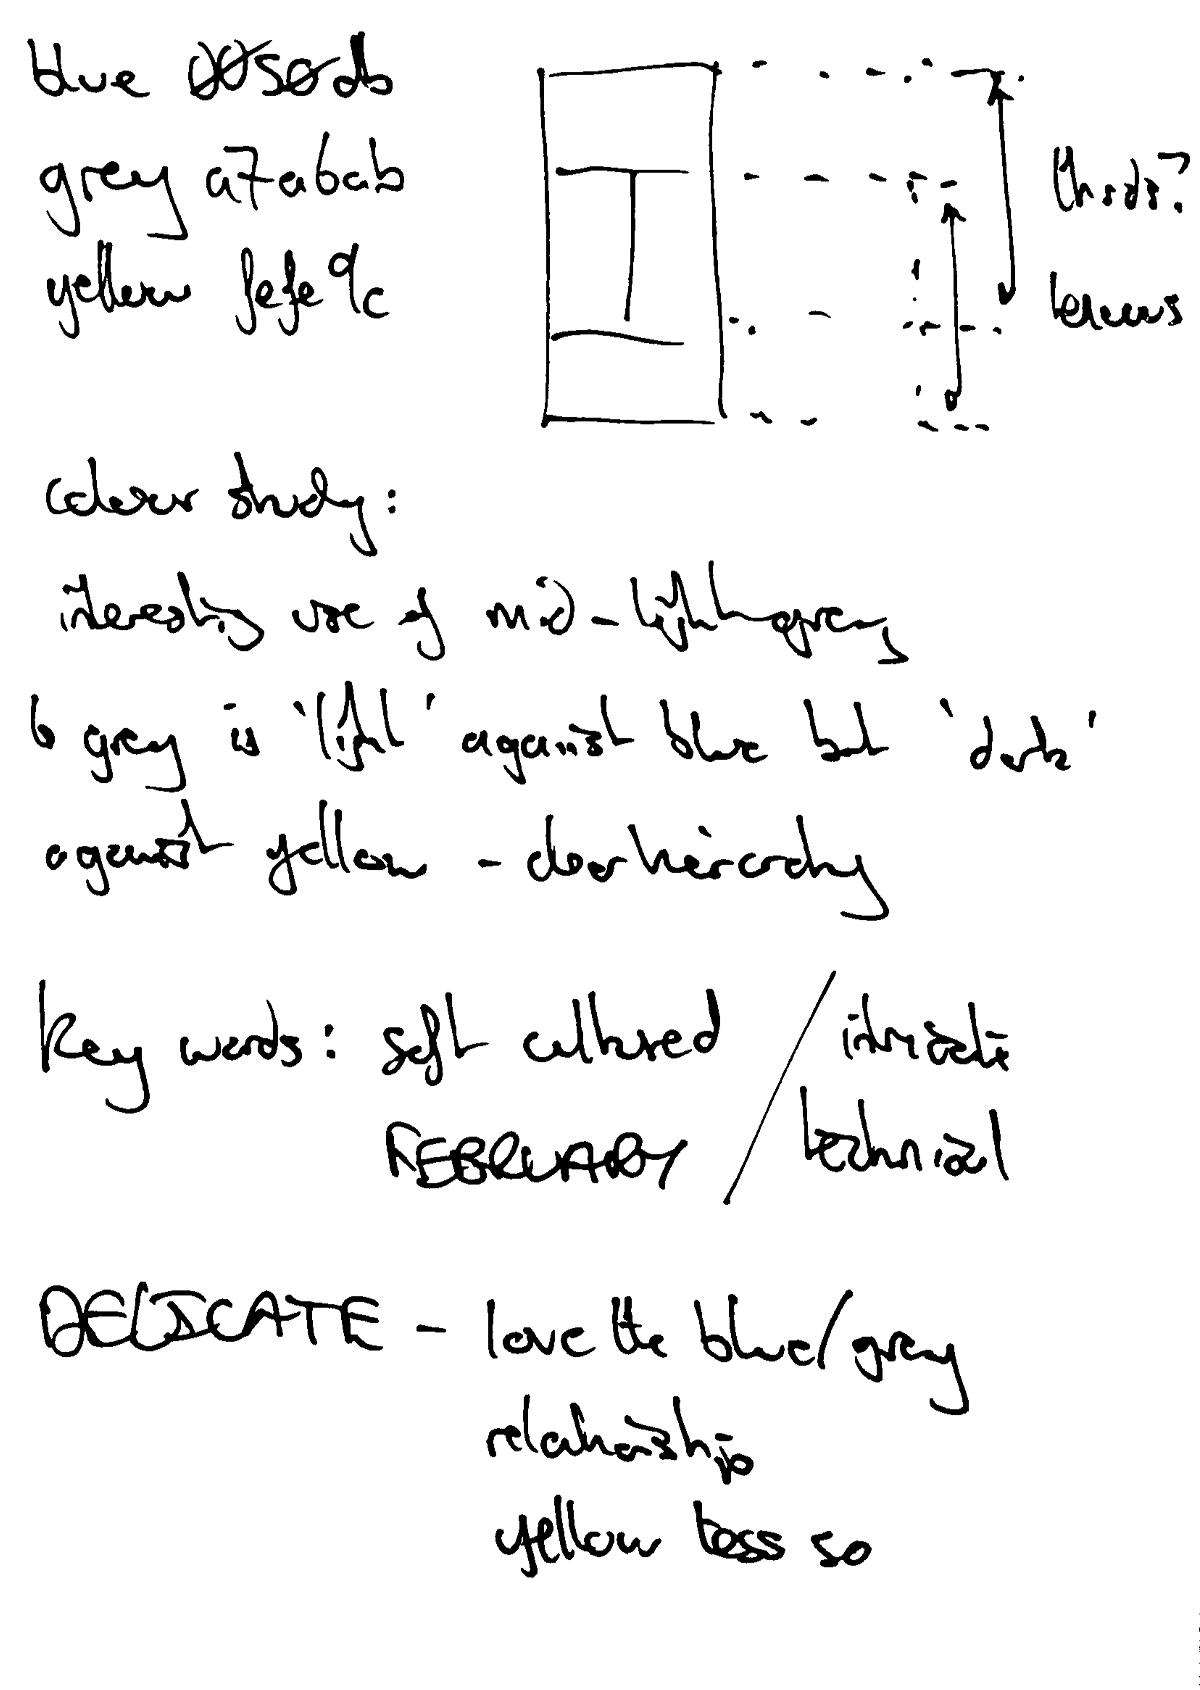 blue 0050db
grey a7a6ab
yellow fefe9c
thirds?
colour study:
interesting use of mid-light grey
grey is 'light' against blue but 'dark'
against yellow - clear hierarchy
key words: soft cultured / intricate
FEBRUARY technical
DELICATE - love the blue/grey
relationship
yellow less so